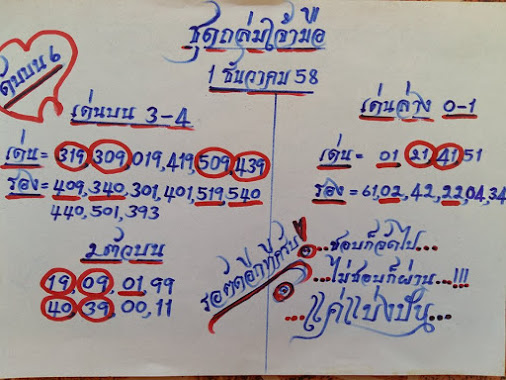 ชุดถล่มเจ้ามือ
1 ธันวาคม 58
ดับบน 6
เด่นบน 3-4
เด่น = 319, 309, 019, 419, 509, 439
รอง = 409, 340, 301, 401, 519, 540
440, 501, 393
2 ตัวบน
19, 09, 01, 99
40, 39, 00, 11
เด่นล่าง 0-1
เด่น = 01, 21, 41, 51
รอง = 61, 02, 42, 22, 04, 34
...ชอบก็จัดไป...
...ไม่ชอบก็ผ่าน...!!!
...แค่แบ่งปัน...